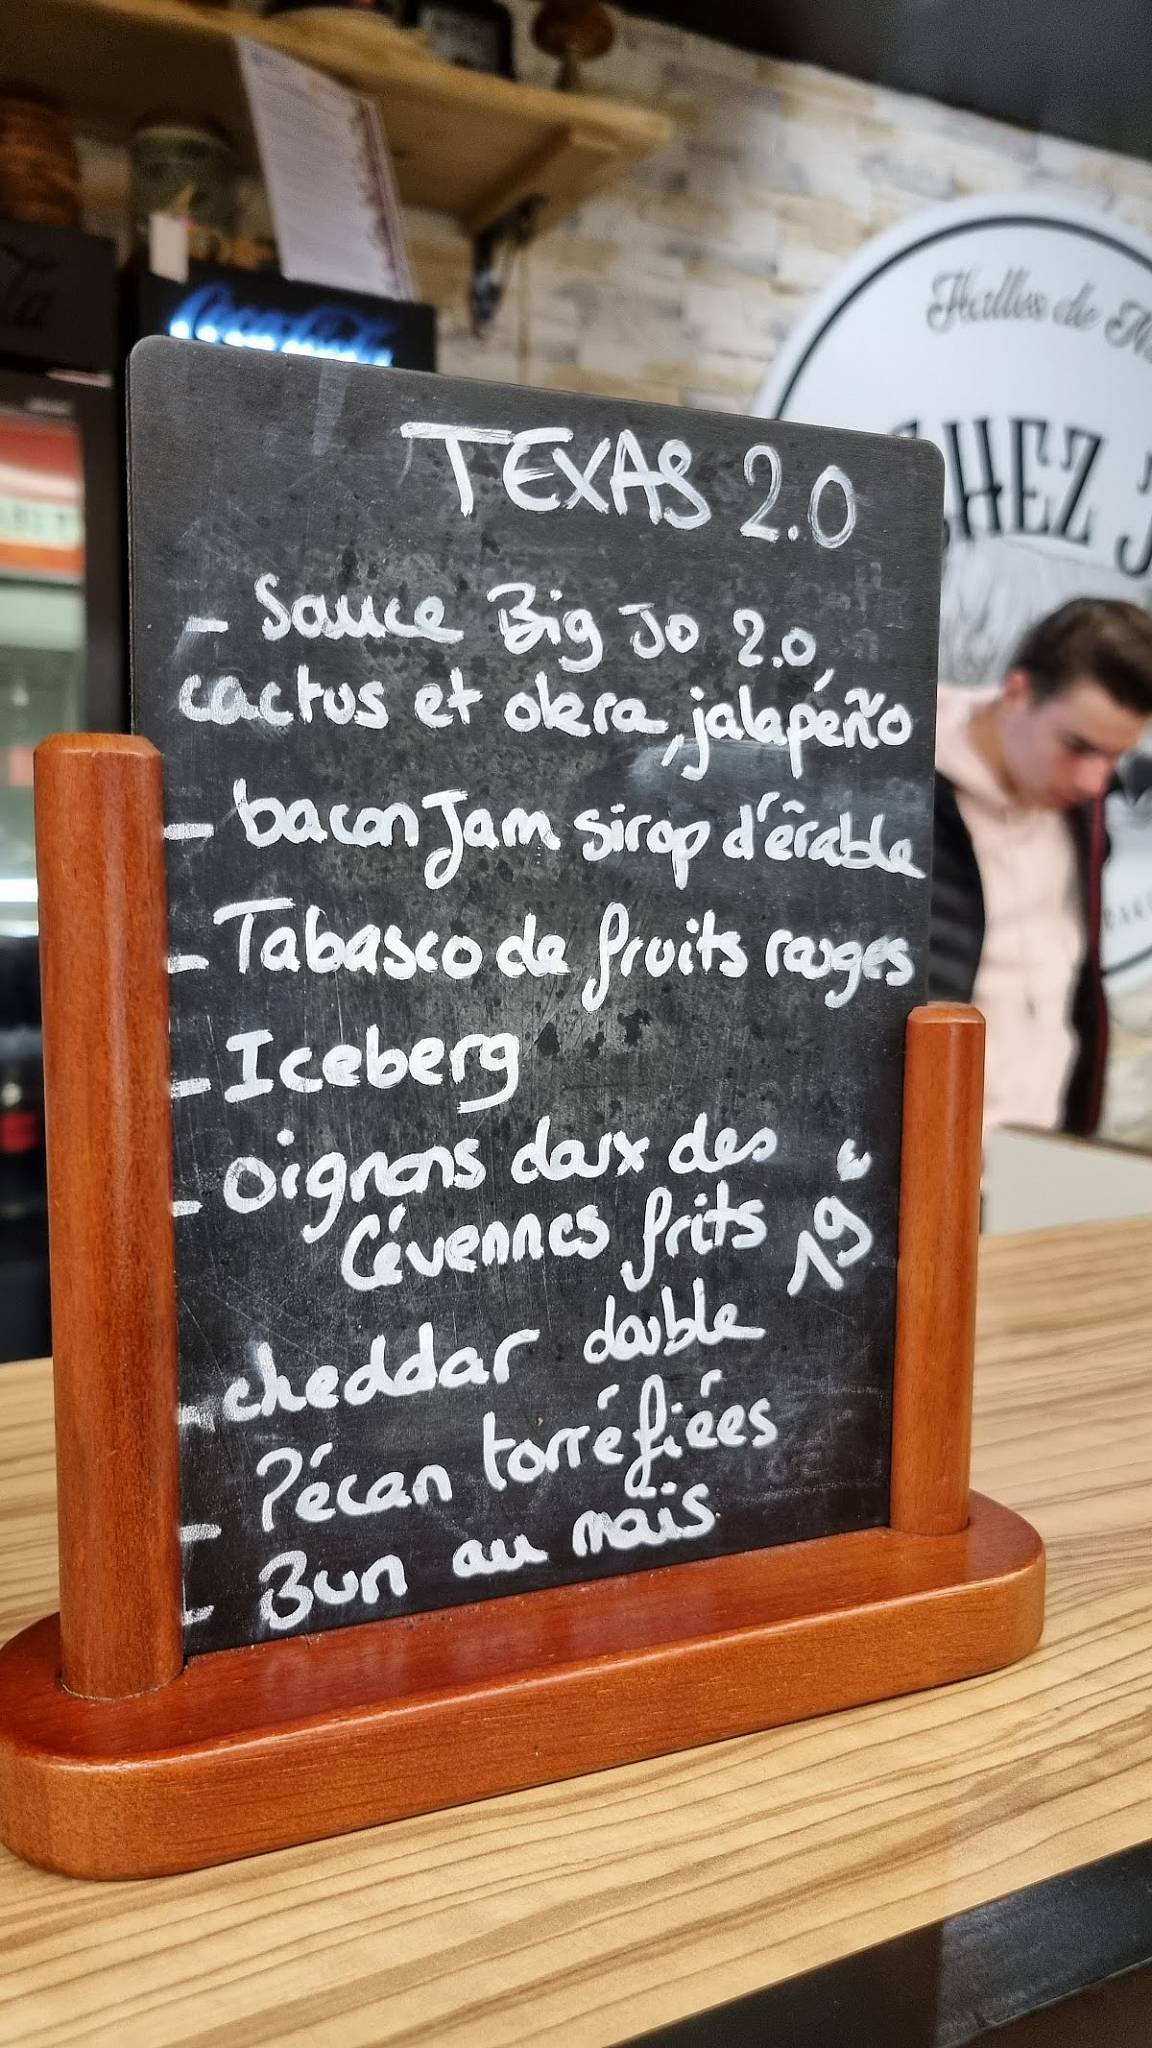 TEXAS 2.0
- Sauce Big Jo 2.0,
cactus et okra, jalapéño
- bacon Jam sirop d'érable
- Tabasco de fruits rouges
- Iceberg
- oignons doux des
Cévennes frits 19€
- cheddar double
- Pécan torréfiées
- Bun au maïs
Coca-Cola
Halles de
CHEZ J